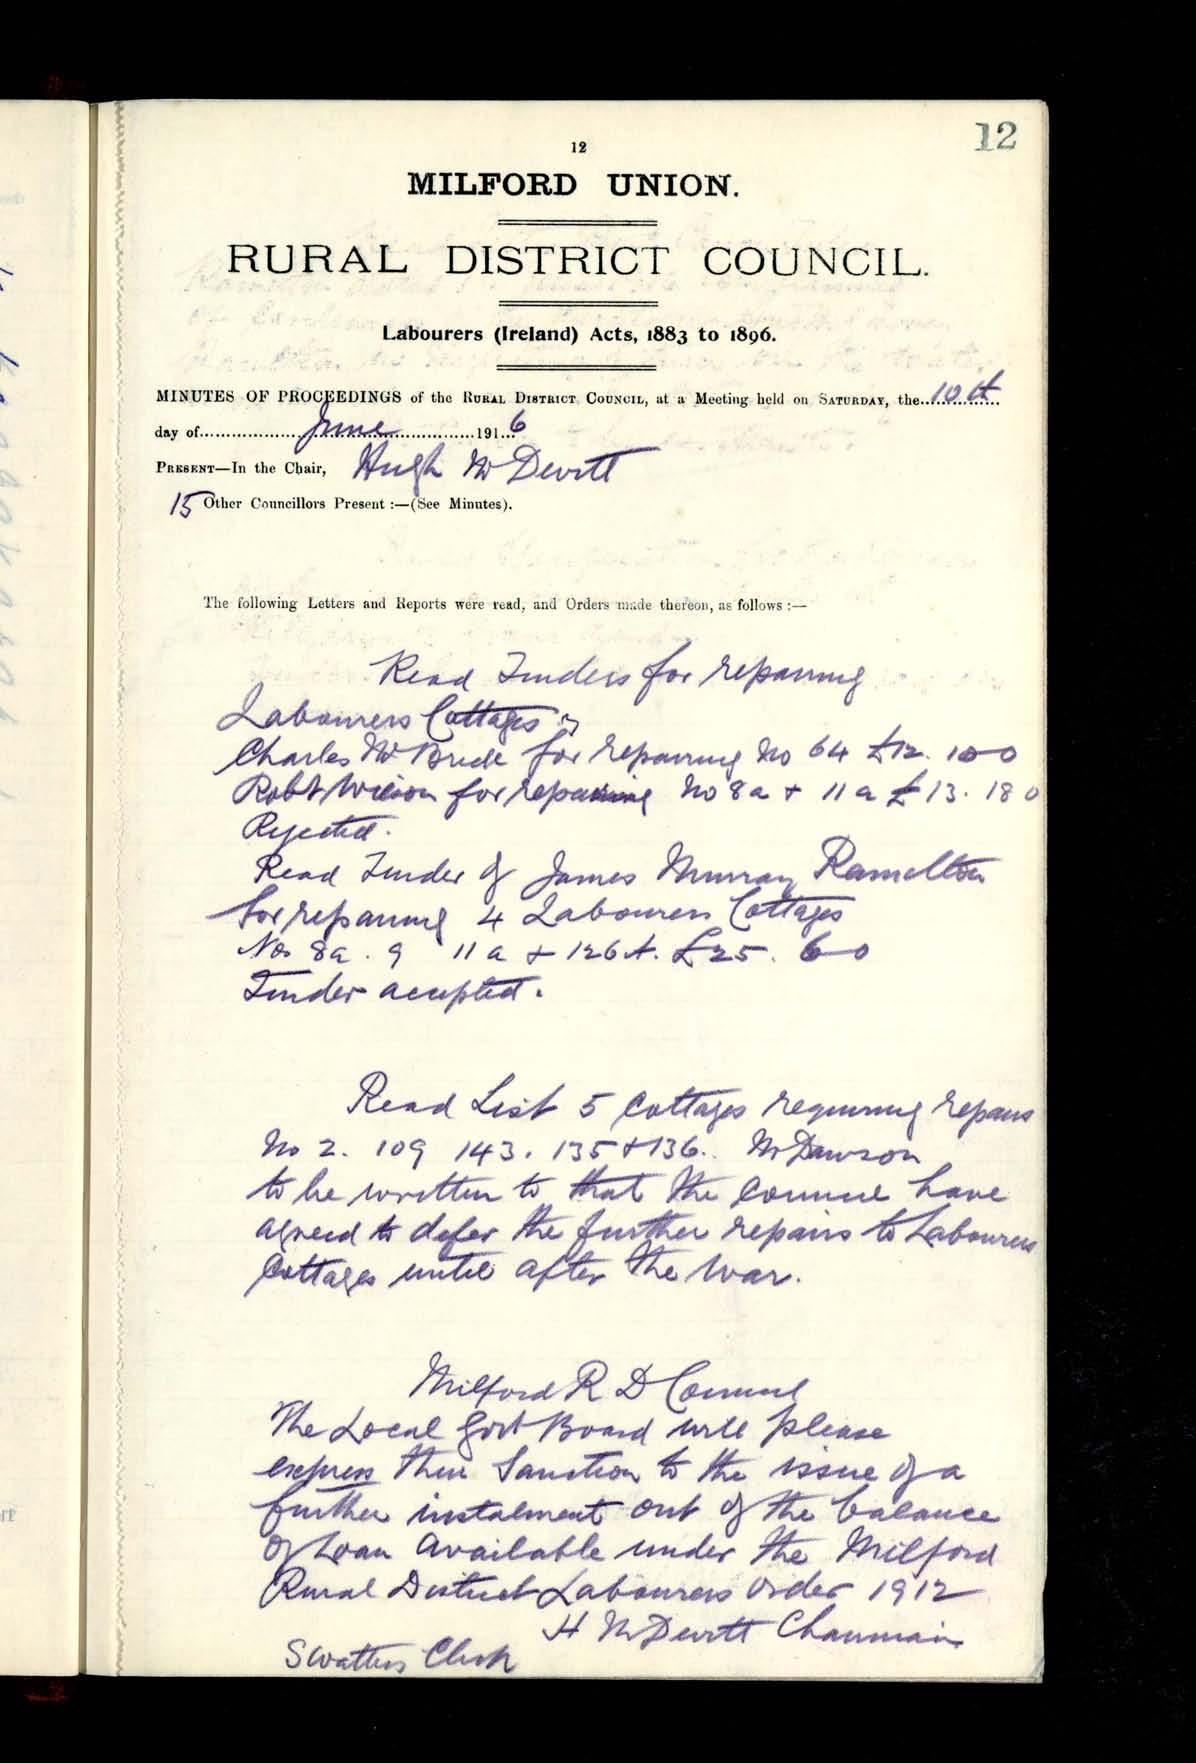 12
12
MILFORD UNION.
RURAL DISTRICT COUNCIL.
Labourers (Ireland) Acts, 1883 to 1896.
MINUTES OF PROCEEDINGS of the Rural District Council, at a Meeting held on Saturday, the 10th
day of June 1916
Present—In the Chair, Hugh McDevitt
15 Other Councillors Present :—(See Minutes).
The following Letters and Reports were read, and Orders made thereon, as follows :—
Read Tenders for repairing
Labourers Cottages
Charles McBride for repairing No 64 £12. 10 0
Robt Wilson for repairing No 8a + 11a £13. 18 0
Rejected.
Read Tender of James Murray Ramelton
for repairing 4 Labourers Cottages
Nos 8a. 9 11a + 126A. £25. 6 0
Tender accepted.
Read List 5 Cottages requiring repairs
No 2. 109 143. 135 + 136. Mr Dawson
to be written to that the Council have
agreed to defer the further repairs to Labourers
Cottages until after the War.
Milford R D Council
The Local Govt Board will please
express their Sanction to the issue of a
further instalment out of the balance
of Loan available under the Milford
Rural District Labourers Order 1912
H McDevitt Chairman
S Watters Clerk